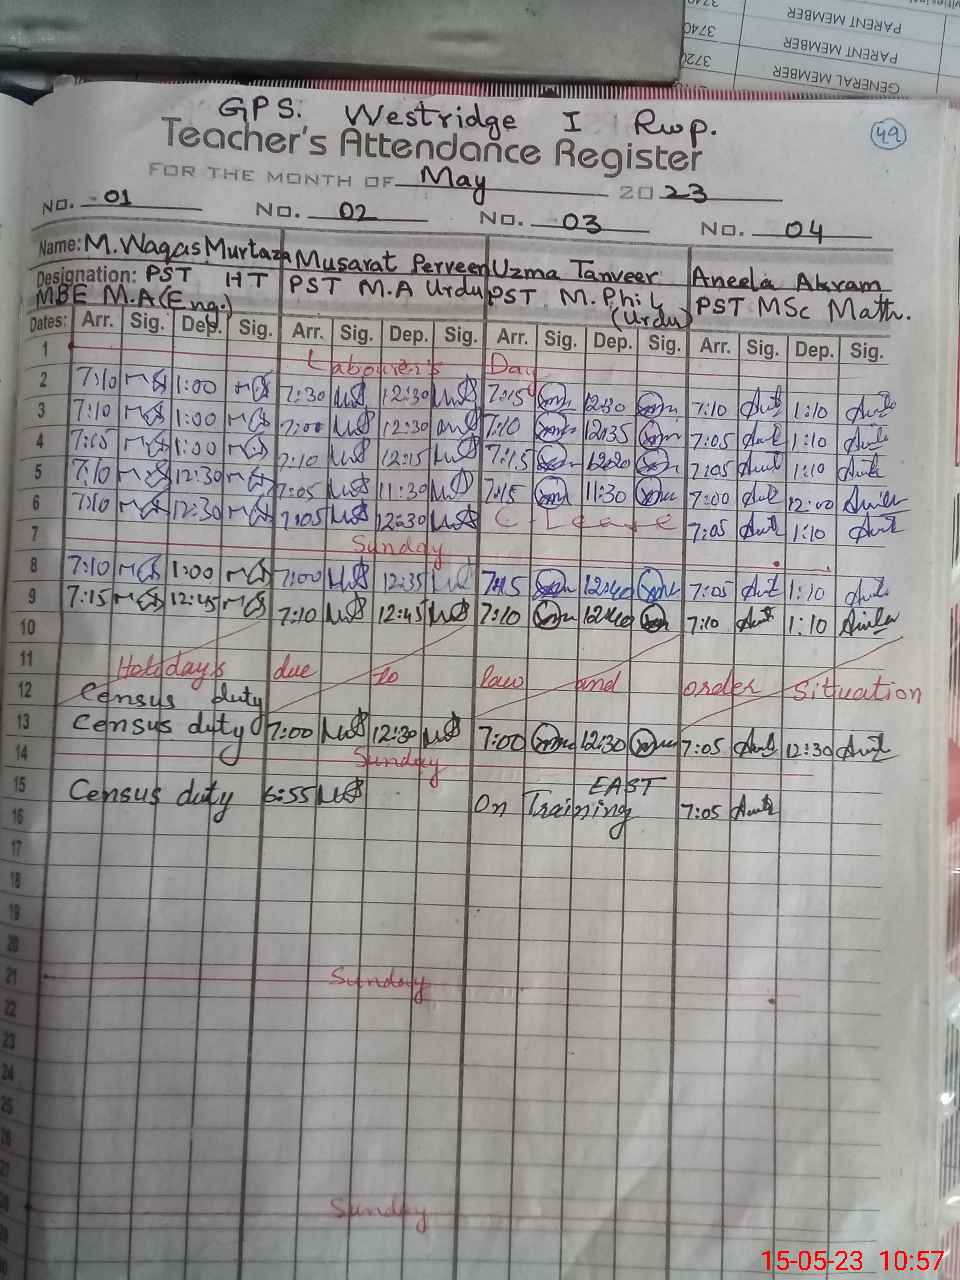 3740
PARENT MEMBER
3740
PARENT MEMBER
3720
GENERAL MEMBER
GPS. Westridge I Rwp.
49
Teacher's Attendance Register
FOR THE MONTH OF May 2023
No. 01 No. 02 No. 03 No. 04
Name: M. Waqas Murtaza Musarat Perveen Uzma Tanveer Aneela Akram
Designation: PST HT PST M.A Urdu PST M.Phil PST MSc Math.
MBE M.A (Eng.) (Urdu)
Dates: Arr. Sig. Dep. Sig. Arr. Sig. Dep. Sig. Arr. Sig. Dep. Sig. Arr. Sig. Dep. Sig.
1 Labourer's Day
2 7:10 1:00 7:30 12:30 7:15 12:30 7:10 1:10
3 7:10 1:00 7:00 12:30 7:10 12:35 7:05 1:10
4 7:05 1:00 7:10 12:15 7:15 12:20 7:05 1:10
5 7:10 12:30 7:05 11:30 7:15 11:30 7:00 12:00
6 7:10 12:30 7:05 12:30 C. Leave 7:05 1:10
7 Sunday
8 7:10 1:00 7:00 12:35 7:15 12:40 7:05 1:10
9 7:15 12:45 7:10 12:45 7:10 12:40 7:10 1:10
10
11 Holidays due to law and order situation
12 Census duty
13 Census duty 7:00 12:30 7:00 12:30 7:05 12:30
14 Sunday
15 Census duty 6:55 On Training EAST 7:05
16
17
18
19
20
21 Sunday
22
23
24
25
26
27
28 Sunday
29
15-05-23 10:57